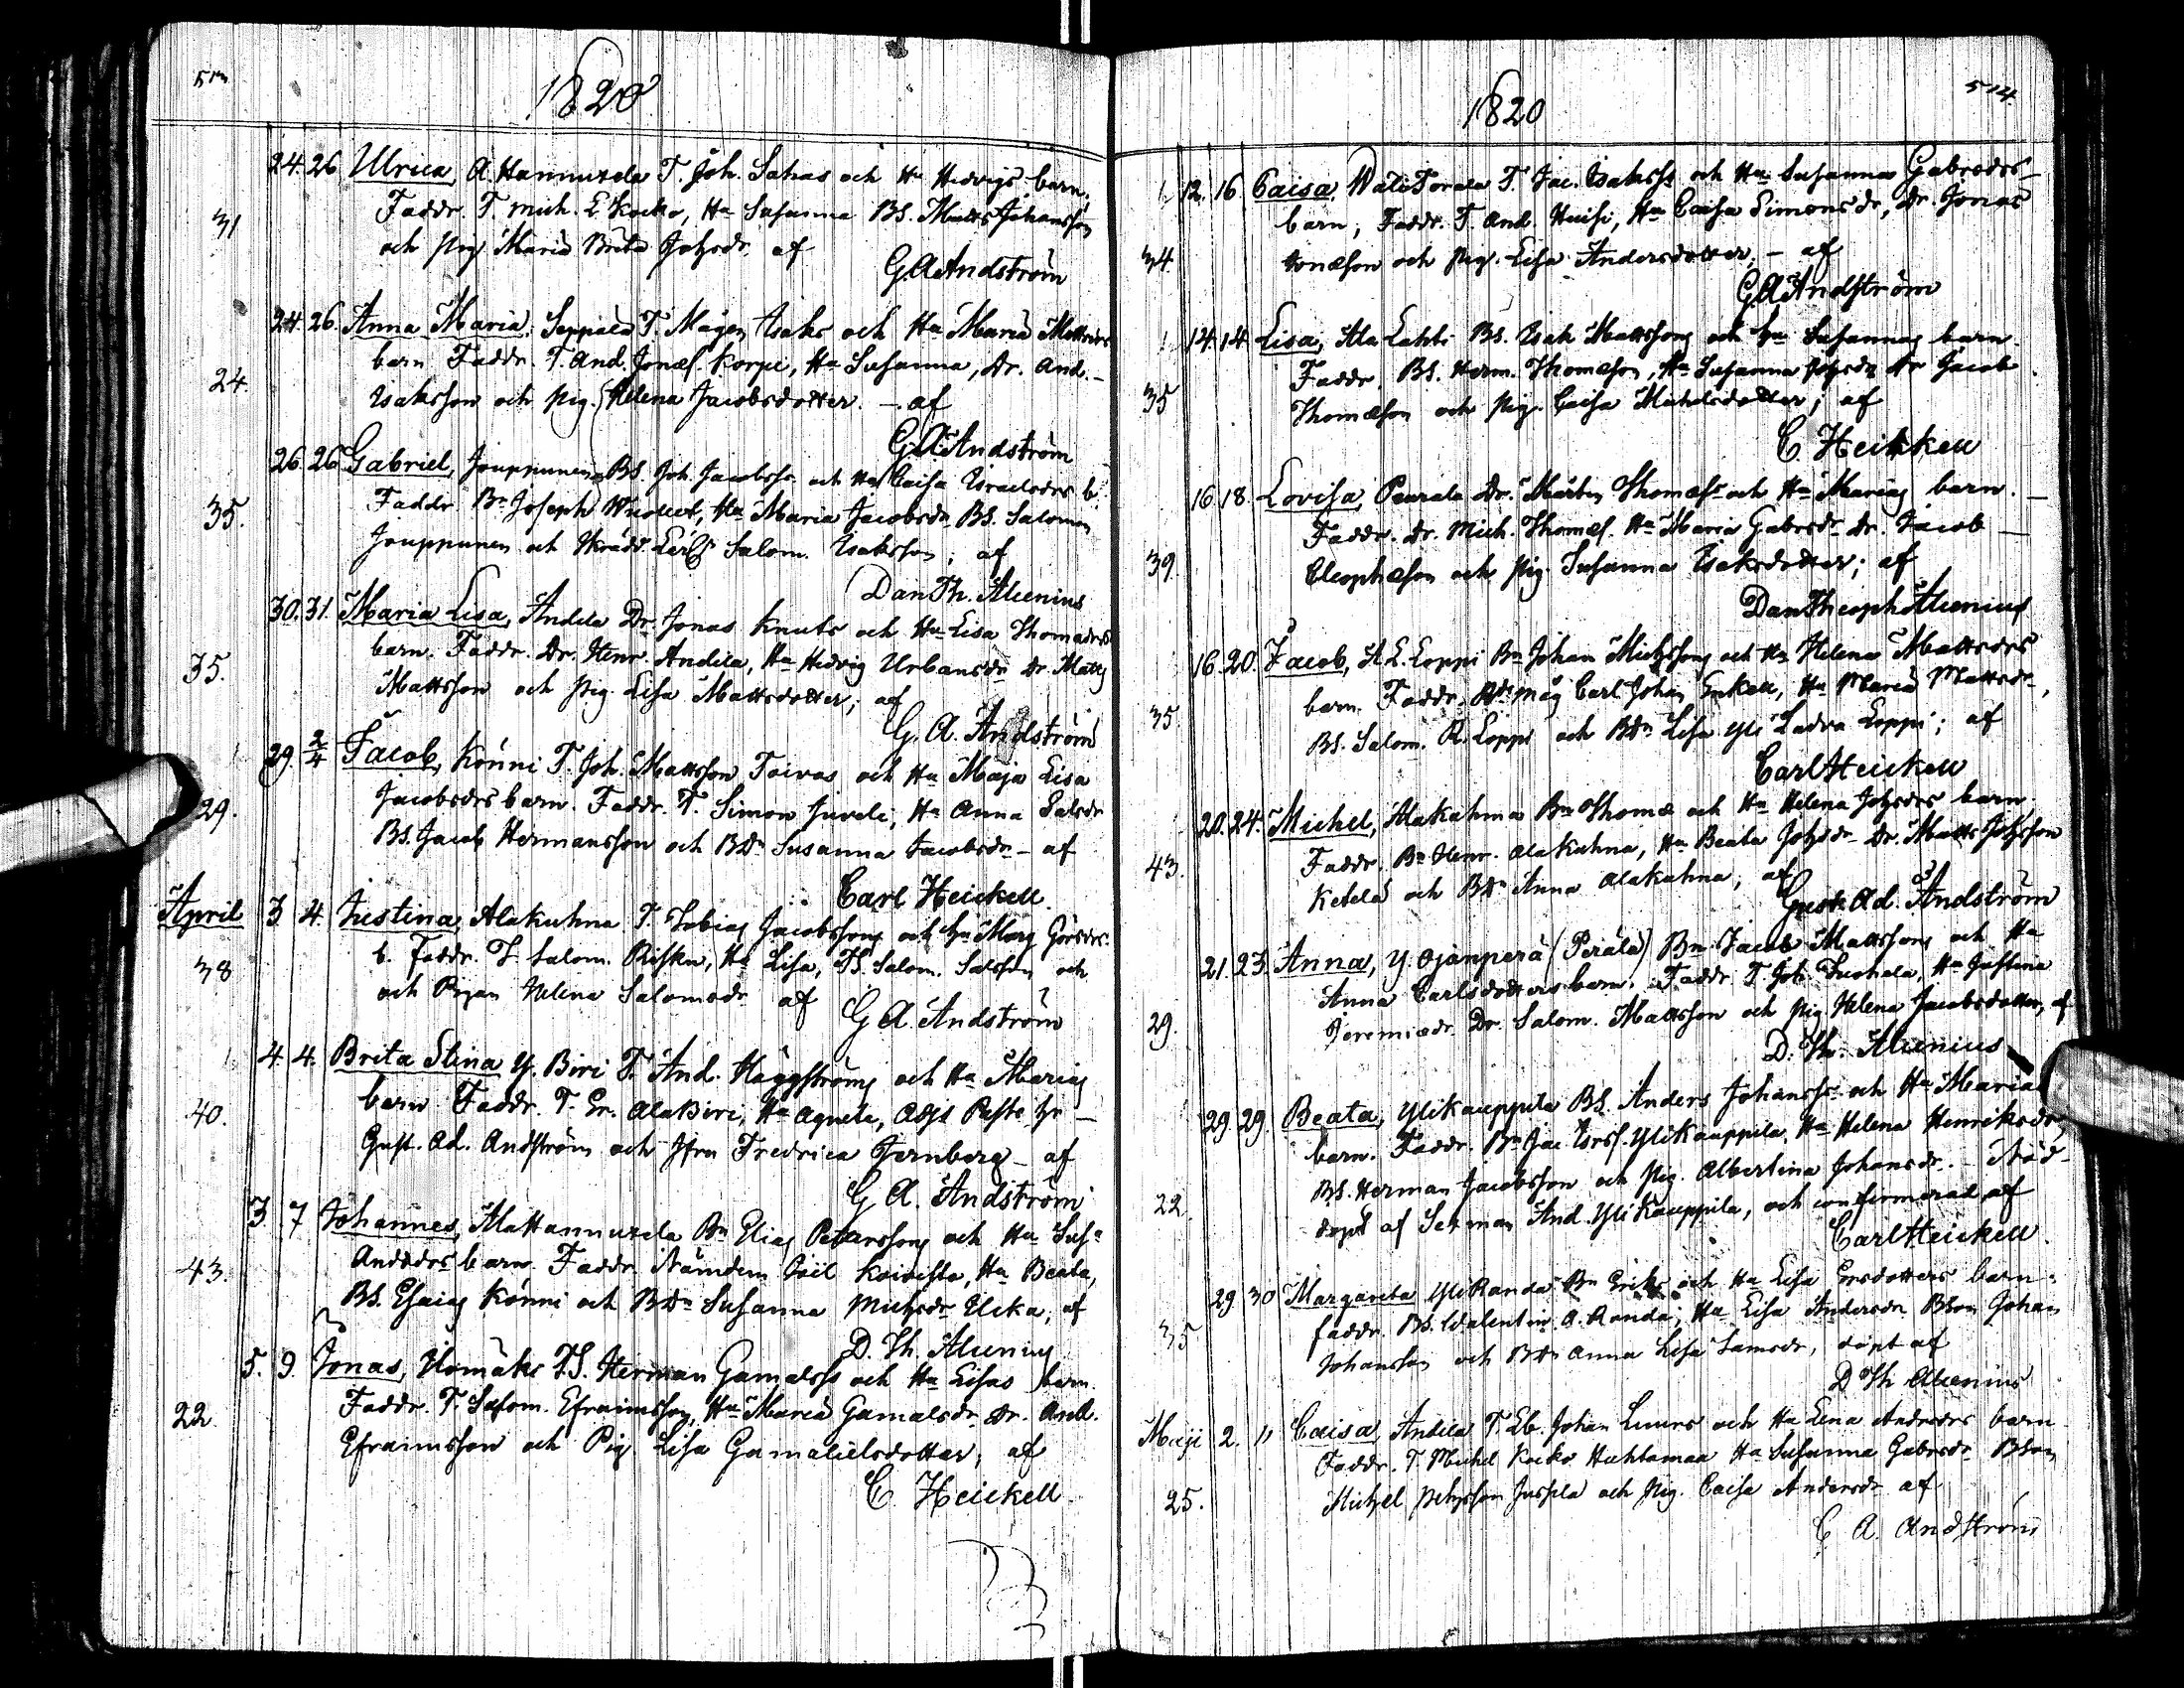 1820
24. 26. Ulrica, A. Hannuxela T. Joh. Sahas och Hu Hedvigs barn,
Faddr. T. Mich. E. Kocko, Hu Susanna BS. Matts Johansson
31
och pig Maria Brita Johsdr. af
G. A. Andström
24. 26. Anna Maria, Seppälä T. Mågen Isaks och Hu Maria Mattsdrs
barn Faddr. T. And. Jonæs. Korpi, Hu Susanna, Dr. And.
24.
Isaksson och pig. Helena Jacobsdotter. – af
G. A. Andström
26. 26 Gabriel, Jouppunen, BS. Joh. Jacobss. och Hu Caisa Israelsdrs b.
Faddr. Bn Joseph Hu Maria Jacobsdr BS. Salomon
35.
Jouppunen och Salom. Isaksson, af
Dan Th. Alcenius
30. 31. Maria Lisa, Andila Dr. Jonas Knuts och Hu Lisa Thomædrs
barn. Faddr. Dr. Henr. Andila, Hu Hedvig Urbansdr Dr. Matts
35.
Mattsson och pig. Lisa Mattsdotter, af
G. A. Andström
29. 2/4 Jacob, Könni T. Joh. Mattsson Toivas och Hu Maja Lisa
Jacobsdrs barn. Faddr. T. Simon Juveli, Hu Anna Salsdr
29.
BS. Jacob Hermansson och BDr Susanna Jacobsdr – af
Carl Heickell.
April 3 4. Justina, Alakuhna T. Tobias Jacobssons och hu Marg Görsdrs
b. Faddr. T. Salom. Risku, Hu Lisa, TS. Salom. Salsson och
38
och Pigan Helena Salomsdr af
G A. Andström
4. 4. Brita Stina Y. Biri T. And. Häggströms och Hu Marias
barn Faddr. T. Er. AlaBiri, Hu Agneta, Adjt Past. hr
40.
Gust. Ad. Andström och Jfru Fredrica Jernberg – af
G A. Andström
3. 7 Johannes, Mattannuxela Bn Elias Peterssons och Hu Sus.
Andsdrs barn. Faddr. Nämdem Joel Koivisto, Hu Beata,
43.
BS. Esaias Könni och BDr Susanna Michsdr Ulka, af
D. Th. Alcenius
5. 9. Jonas, Ilomäki TS. Herman Gamalss och Hu Lisas barn.
Faddr. T. Salom. Efraimsson, Hu Maria Gamalsdr, Dr. And.
22
Efraimsson och Pig Lisa Gamalielsdotter, af
C. Heickell
514.
1820
12. 16. Caisa, WäliTorala T. Jac. Isakss och Hu Susanna Gabrsdrs
barn, Faddr. T. And. Huisi, Hu Caisa Simonsdr, Dr. Jonas
34.
Jonæson och pig. Lisa Andersdotter, – af
G A Andström
14. 14. Lisa, Ala Lahti BS. Isak Mattssons och hu Susannas barn.
Faddr. BS. Herm. Thomæson, Hu Susanna Dr Jacob
35
Thomæson och pig. Caisa Michelsdotter; af
C. Heickell
16. 18. Lovisa, Pourala Dr. Mårten Thomæss och Hu Marias barn.
Faddr. Dr. Mich. Thomæs. Hu Maria Gabrsdr Dr. Jacob
39.
Cleophæson och pig. Susanna Isaksdotter; af
Dan Theoph Alcenius
16. 20. Jacob, A. L. Loppi Bn Johan Michssons och Hu Helena Mattsdrs
barn. Faddr. måg Carl Johan Enkell, Hu Maria Mattsdr,
35.
BS. Salom. R. Loppi och BDr Lisa Yli Ladva Loppi; af
Carl Heickell
20. 24. Michel, Alakahma Bn Thomæ och Hu Helena Johsdrs barn
Faddr. Bn Henr. Alakahna, Hu Beata Johsdr Dr. Matts Johsson
43.
Ketela och BDr Anna Alakahna, af
Gust. Ad. Andström
21. 23. Anna, Y. Ojanperä (Perälä) Bn. Jacob Mattssons och Hu
Anna Carlsdotters barn. Faddr T. Joh. Luohala, Hu Justina
29.
Jeremiædr. Dr. Salom. Mattsson och pig Helena Jacobsdotter, af
D. Th. Alcenius
29 29. Beata, Ylikauppila BS. Anders Johanss. och Hu Marias
barn. Faddr. Bn Jac. Isrs. Ylikauppila, Hu Helena Henriksdr,
BS. Herman Jacobsson och pig. Albertina Johansdr. – Nöd-
22.
döpt af Sexman And. Ylikauppila, och confirmerad af
Carl Heickell.
29. 30 Margareta YliRanda Bn Eriks och Hu Lisa Ersdotters barn
faddr. BS. Valentin A. Randa, Hu Lisa Andersdr Bson Johan
35
Johansson och BDr Anna Lisa Samsdr, döpt af
D Th Alcenius
Maji 2. 11 Caisa, Andila T. Eb. Johan Luurs och Hu Lena Andersdrs barn
Faddr. T. Michel Kocko Huhtamaa Hu Susanna Gabrsdr Bson
25.
Michel Jussila och pig. Caisa Andersdr af
G A. Andström